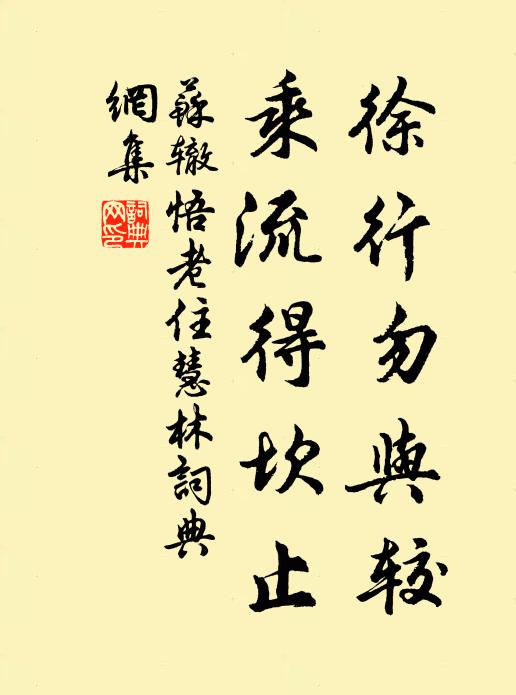 徐行勿與较
乘流得坎止
蘇辙悟老住慧林詞典
網集
詞典
网印